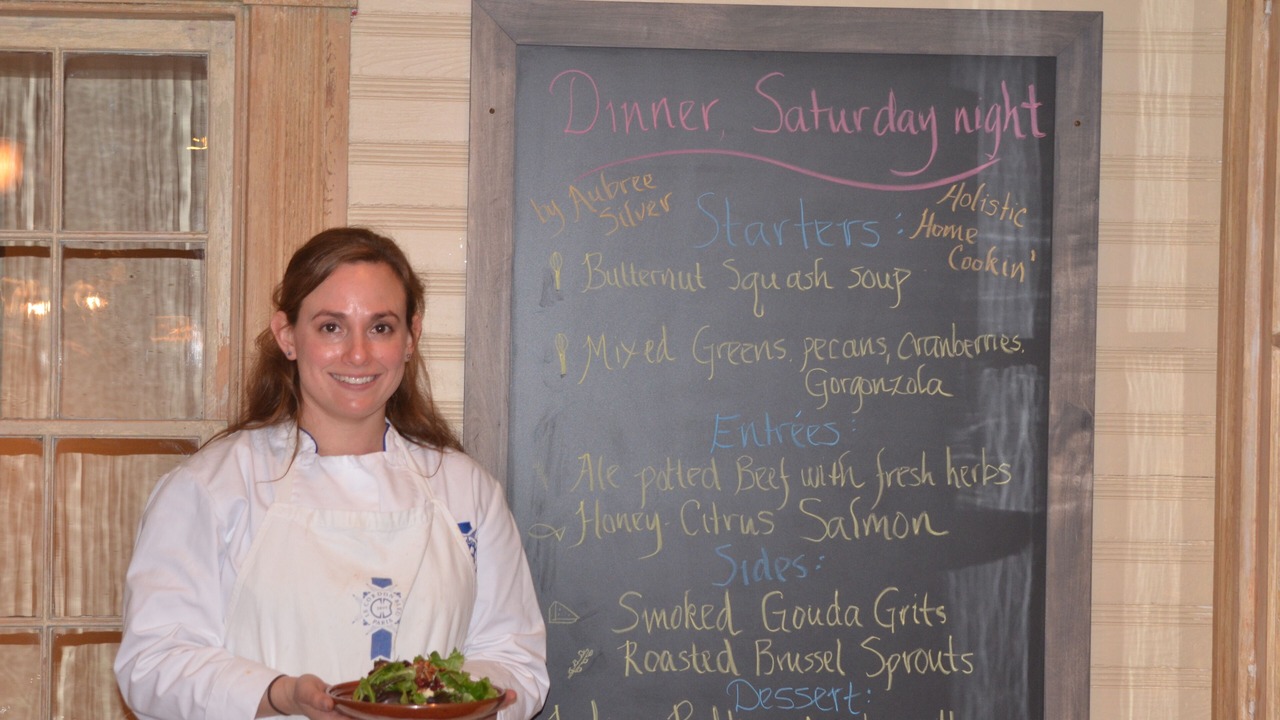 Dinner, Saturday night
by Aubree
Silver
Holistic
Home
Cookin'
Starters:
Butternut Squash soup
Mixed Greens, pecans, cranberries,
Gorgonzola
Entrées:
Ale potted Beef with fresh herbs
Honey-Citrus Salmon
Sides:
Smoked Gouda Grits
Roasted Brussel Sprouts
Dessert:
LE CORDON BLEU
PARIS